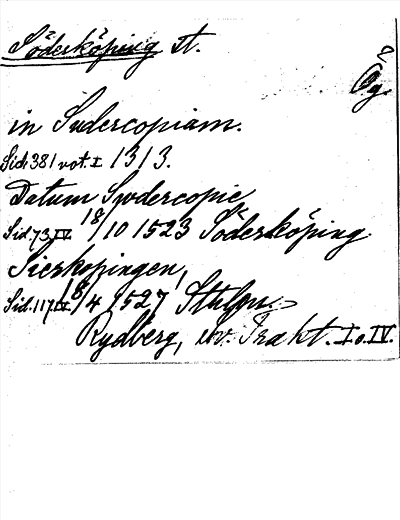 Söderköping st.
Ög.
in Sudercopiam.
Sid. 381 not. I 1313.
Datum Swdercopie
Sid. 73. IV. 18/10 1523 Söderköping
Sierkopingen,
Sid. 117. IV. 18/4 1527 Sthlm.
Rydberg, Sv. Trakt. I o. IV.